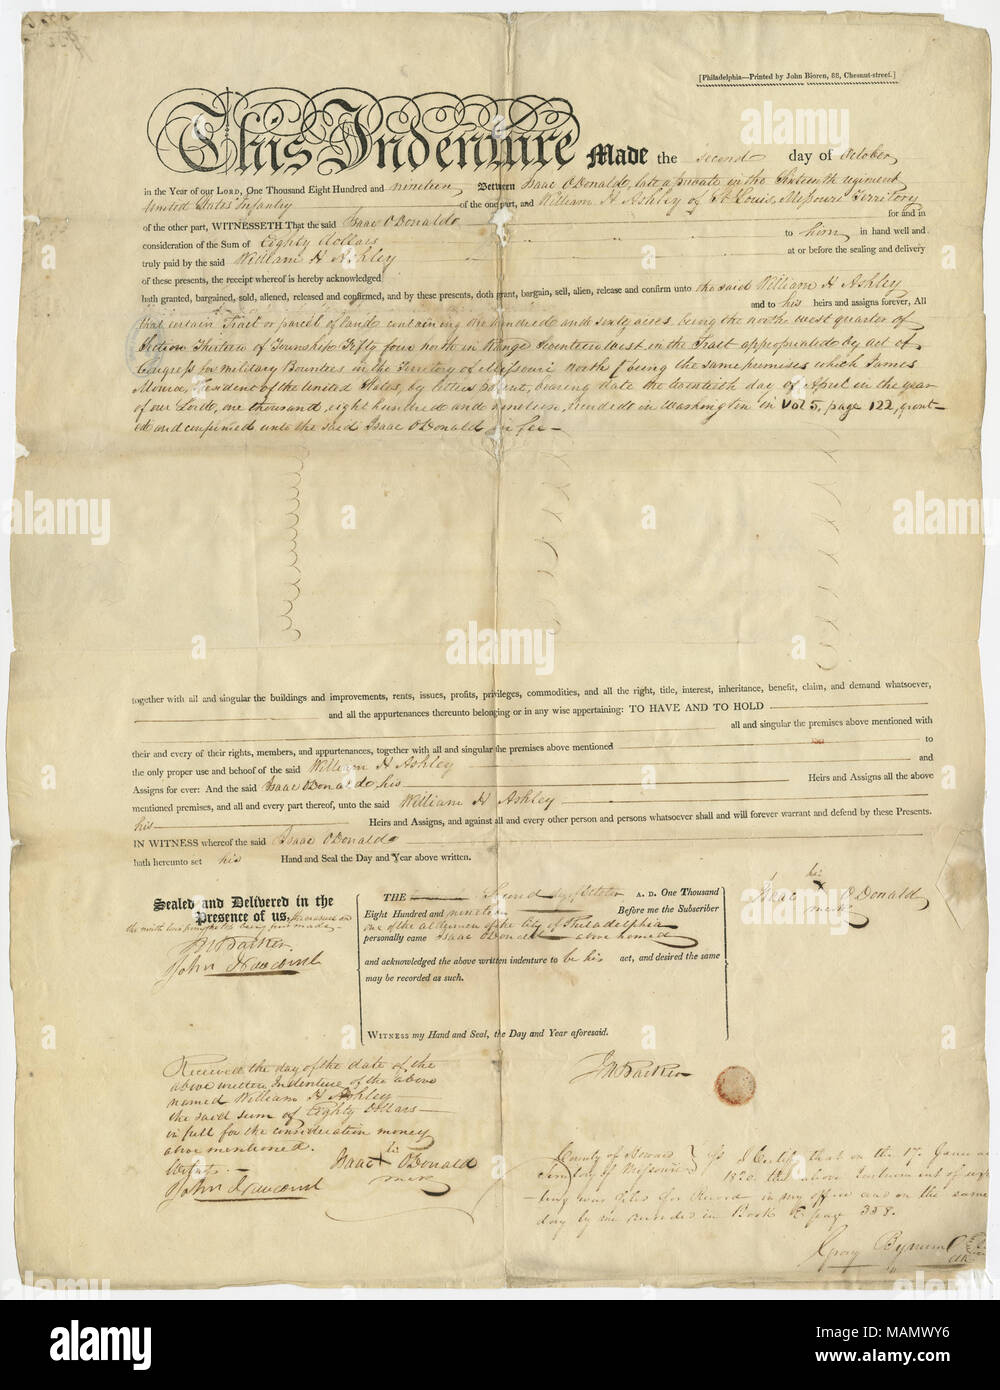 [Philadelphia—Printed by John Bioren, 88, Chesnut-street.]
This Indenture Made the second day of October
in the Year of our LORD, One Thousand Eight Hundred and nineteen Between Isaac O'Donald, late a private in the Sixteenth regiment
United States Infantry of the one part, and William H Ashley of St Louis, Missouri Territory
of the other part, WITNESSETH That the said Isaac O'Donald for and in
consideration of the Sum of Eighty dollars to him in hand well and
truly paid by the said William H Ashley at or before the sealing and delivery
of these presents, the receipt whereof is hereby acknowledged
hath granted, bargained, sold, aliened, released and confirmed, and by these presents, doth grant, bargain, sell, alien, release and confirm unto the said William H Ashley
and to his heirs and assigns forever, All
that certain Tract or parcel of land containing one hundred and sixty acres, being the north west quarter of
Section Thirteen of Township Fifty four north in Range Seventeen West in the Tract appropriated by act of
Congress for military Bounties in the Territory of Missouri north (being the same premises which James
Monroe, President of the United States, by letters patent, bearing date the twentieth day of April in the year
of our Lord, one thousand, eight hundred and nineteen, recorded in Washington in Vol 5, page 122, grant-
ed and confirmed unto the said Isaac O'Donald in fee—
together with all and singular the buildings and improvements, rents, issues, profits, privileges, commodities, and all the right, title, interest, inheritance, benefit, claim, and demand whatsoever,
and all the appurtenances thereunto belonging or in any wise appertaining: TO HAVE AND TO HOLD
all and singular the premises above mentioned with
their and every of their rights, members, and appurtenances, together with all and singular the premises above mentioned to
the only proper use and behoof of the said William H Ashley and
Assigns for ever: And the said Isaac O'Donald his Heirs and Assigns all the above
mentioned premises, and all and every part thereof, unto the said William H Ashley
his Heirs and Assigns, and against all and every other person and persons whatsoever shall and will forever warrant and defend by these Presents.
IN WITNESS whereof the said Isaac O'Donald
hath hereunto set his Hand and Seal the Day and Year above written.
Sealed and Delivered in the
Presence of us,
the being first made,
J M Barker.
John
THE Second day of October A. D. One Thousand
Eight Hundred and nineteen Before me the Subscriber
one of the aldermen of the City of Philadelphia
personally came Isaac O'Donald above named
and acknowledged the above written indenture to be his act, and desired the same
may be recorded as such.
WITNESS my Hand and Seal, the Day and Year aforesaid.
J M Barker
his
Isaac X O'Donald
mark
Received the day of the date of the
above written Indenture of the above
named William H Ashley
the said sum of Eighty Dollars
in full for the consideration money
above mentioned.
Witness.—
John
his
Isaac X O'Donald
mark
County of Howard
Territory of Missouri } I Certify that on the 17. June
1820 the above Instrument of wri
ting was filed for Record in my office and on the same
day by me recorded in Book E page 338.
Gray Bynum Clk
alamy stock photo
alamy
alamy
alamy
alamy
a
MAMWY6
www.alamy.com